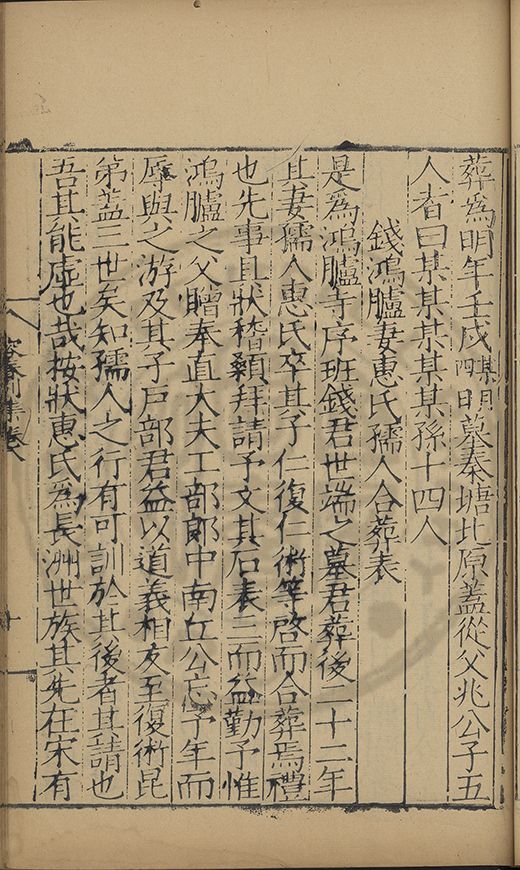 葬爲明年壬戌某月某日墓秦塘北原蓋從父兆公子五
人者曰某某某某孫十四人
錢鴻臚妻惠氏孺人合葬表
是爲鴻臚寺序班錢君世端之墓君葬後二十二年
其妻孺人惠氏卒其子仁復仁術等啓而合葬焉禮
也先事具狀稽顙拜請予文其石表三而益勤予惟
鴻臚之父贈奉直大夫工部郎中南丘公忘予年而
辱與之游及其子戶部君益以道義相友至復術昆
第蓋三世矣知孺人之行有可訓於其後者其請也
吾其能虛也哉按狀惠氏爲長洲世族其先在宋有